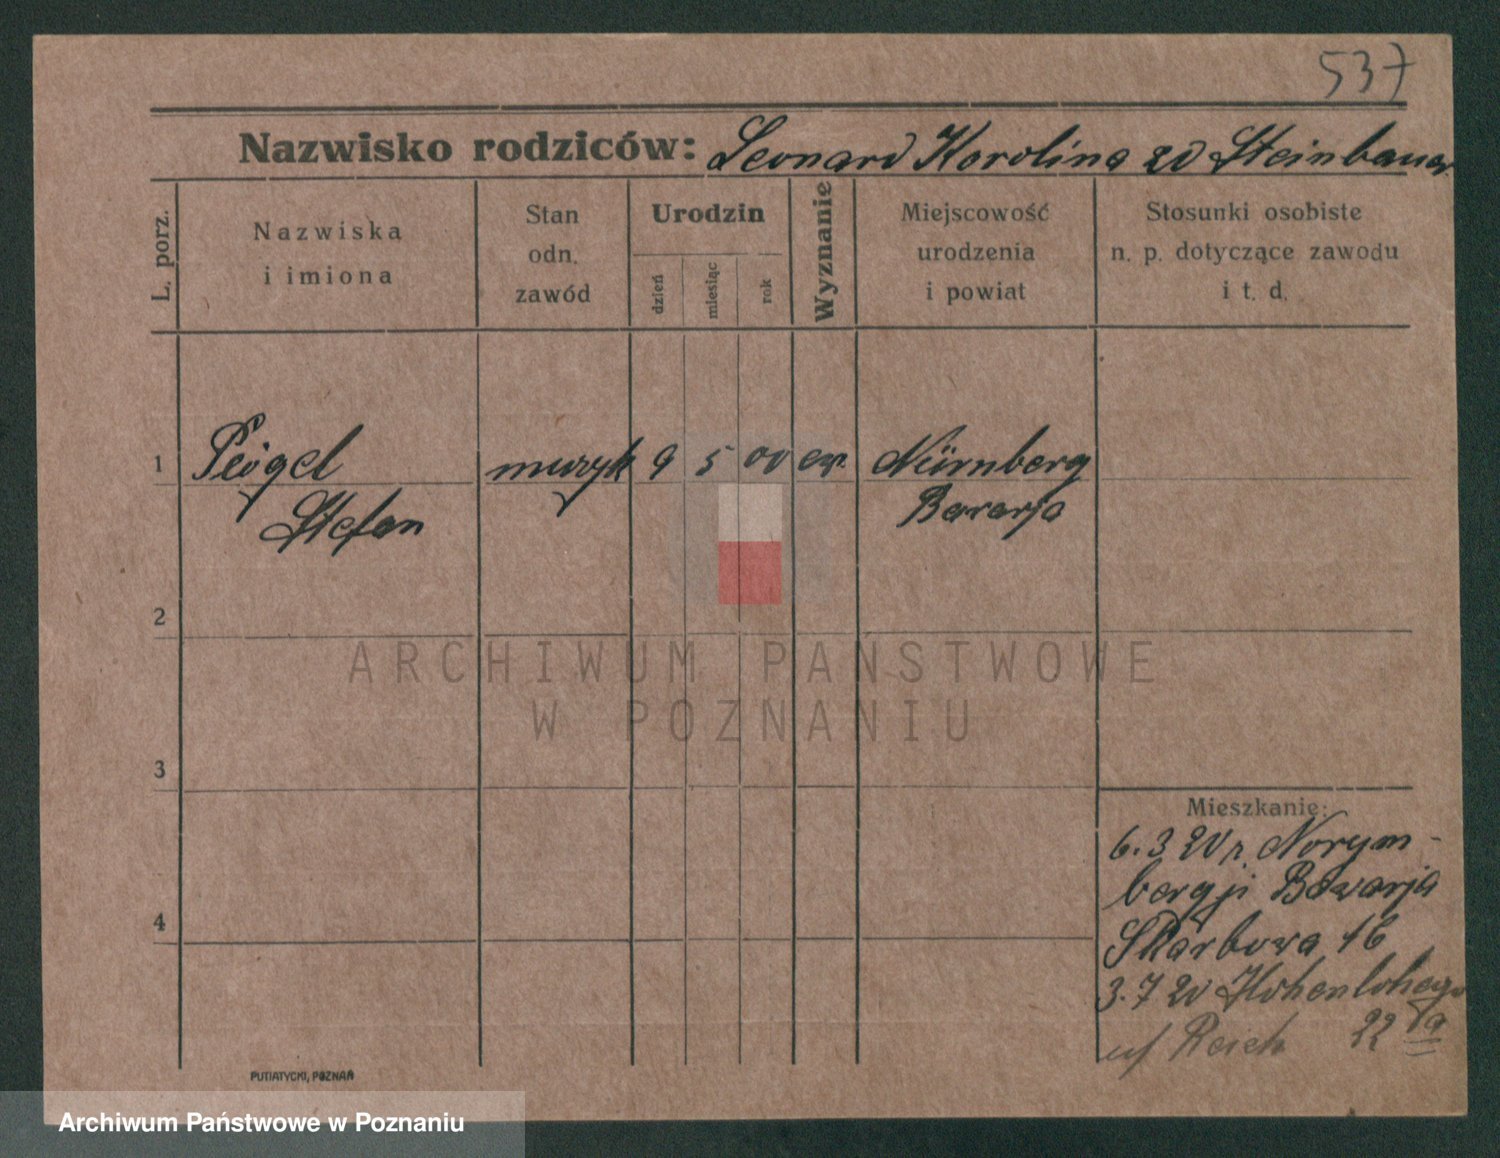 537
Nazwisko rodziców: Leonard Karolina zd Steinbauer
L. porz.
Nazwiska
i imiona
Stan
odn.
zawód
Urodzin
dzień
miesiąc
rok
Wyznanie
Miejscowość
urodzenia
i powiat
Stosunki osobiste
n. p. dotyczące zawodu
i t. d.
1 Peigel muzyk 9 5 00 ew. Nürnberg
Stefan Bavarja
2
ARCHIWUM PAŃSTWOWE
W POZNANIU
3
Mieszkanie:
6. 3 20 r. Norym-
bergji Bavarja
4
Skarbowa 16
3. 7 20 Hohenlohego
Reich 22
PUTIATYCKI, POZNAŃ
Archiwum Państwowe w Poznaniu